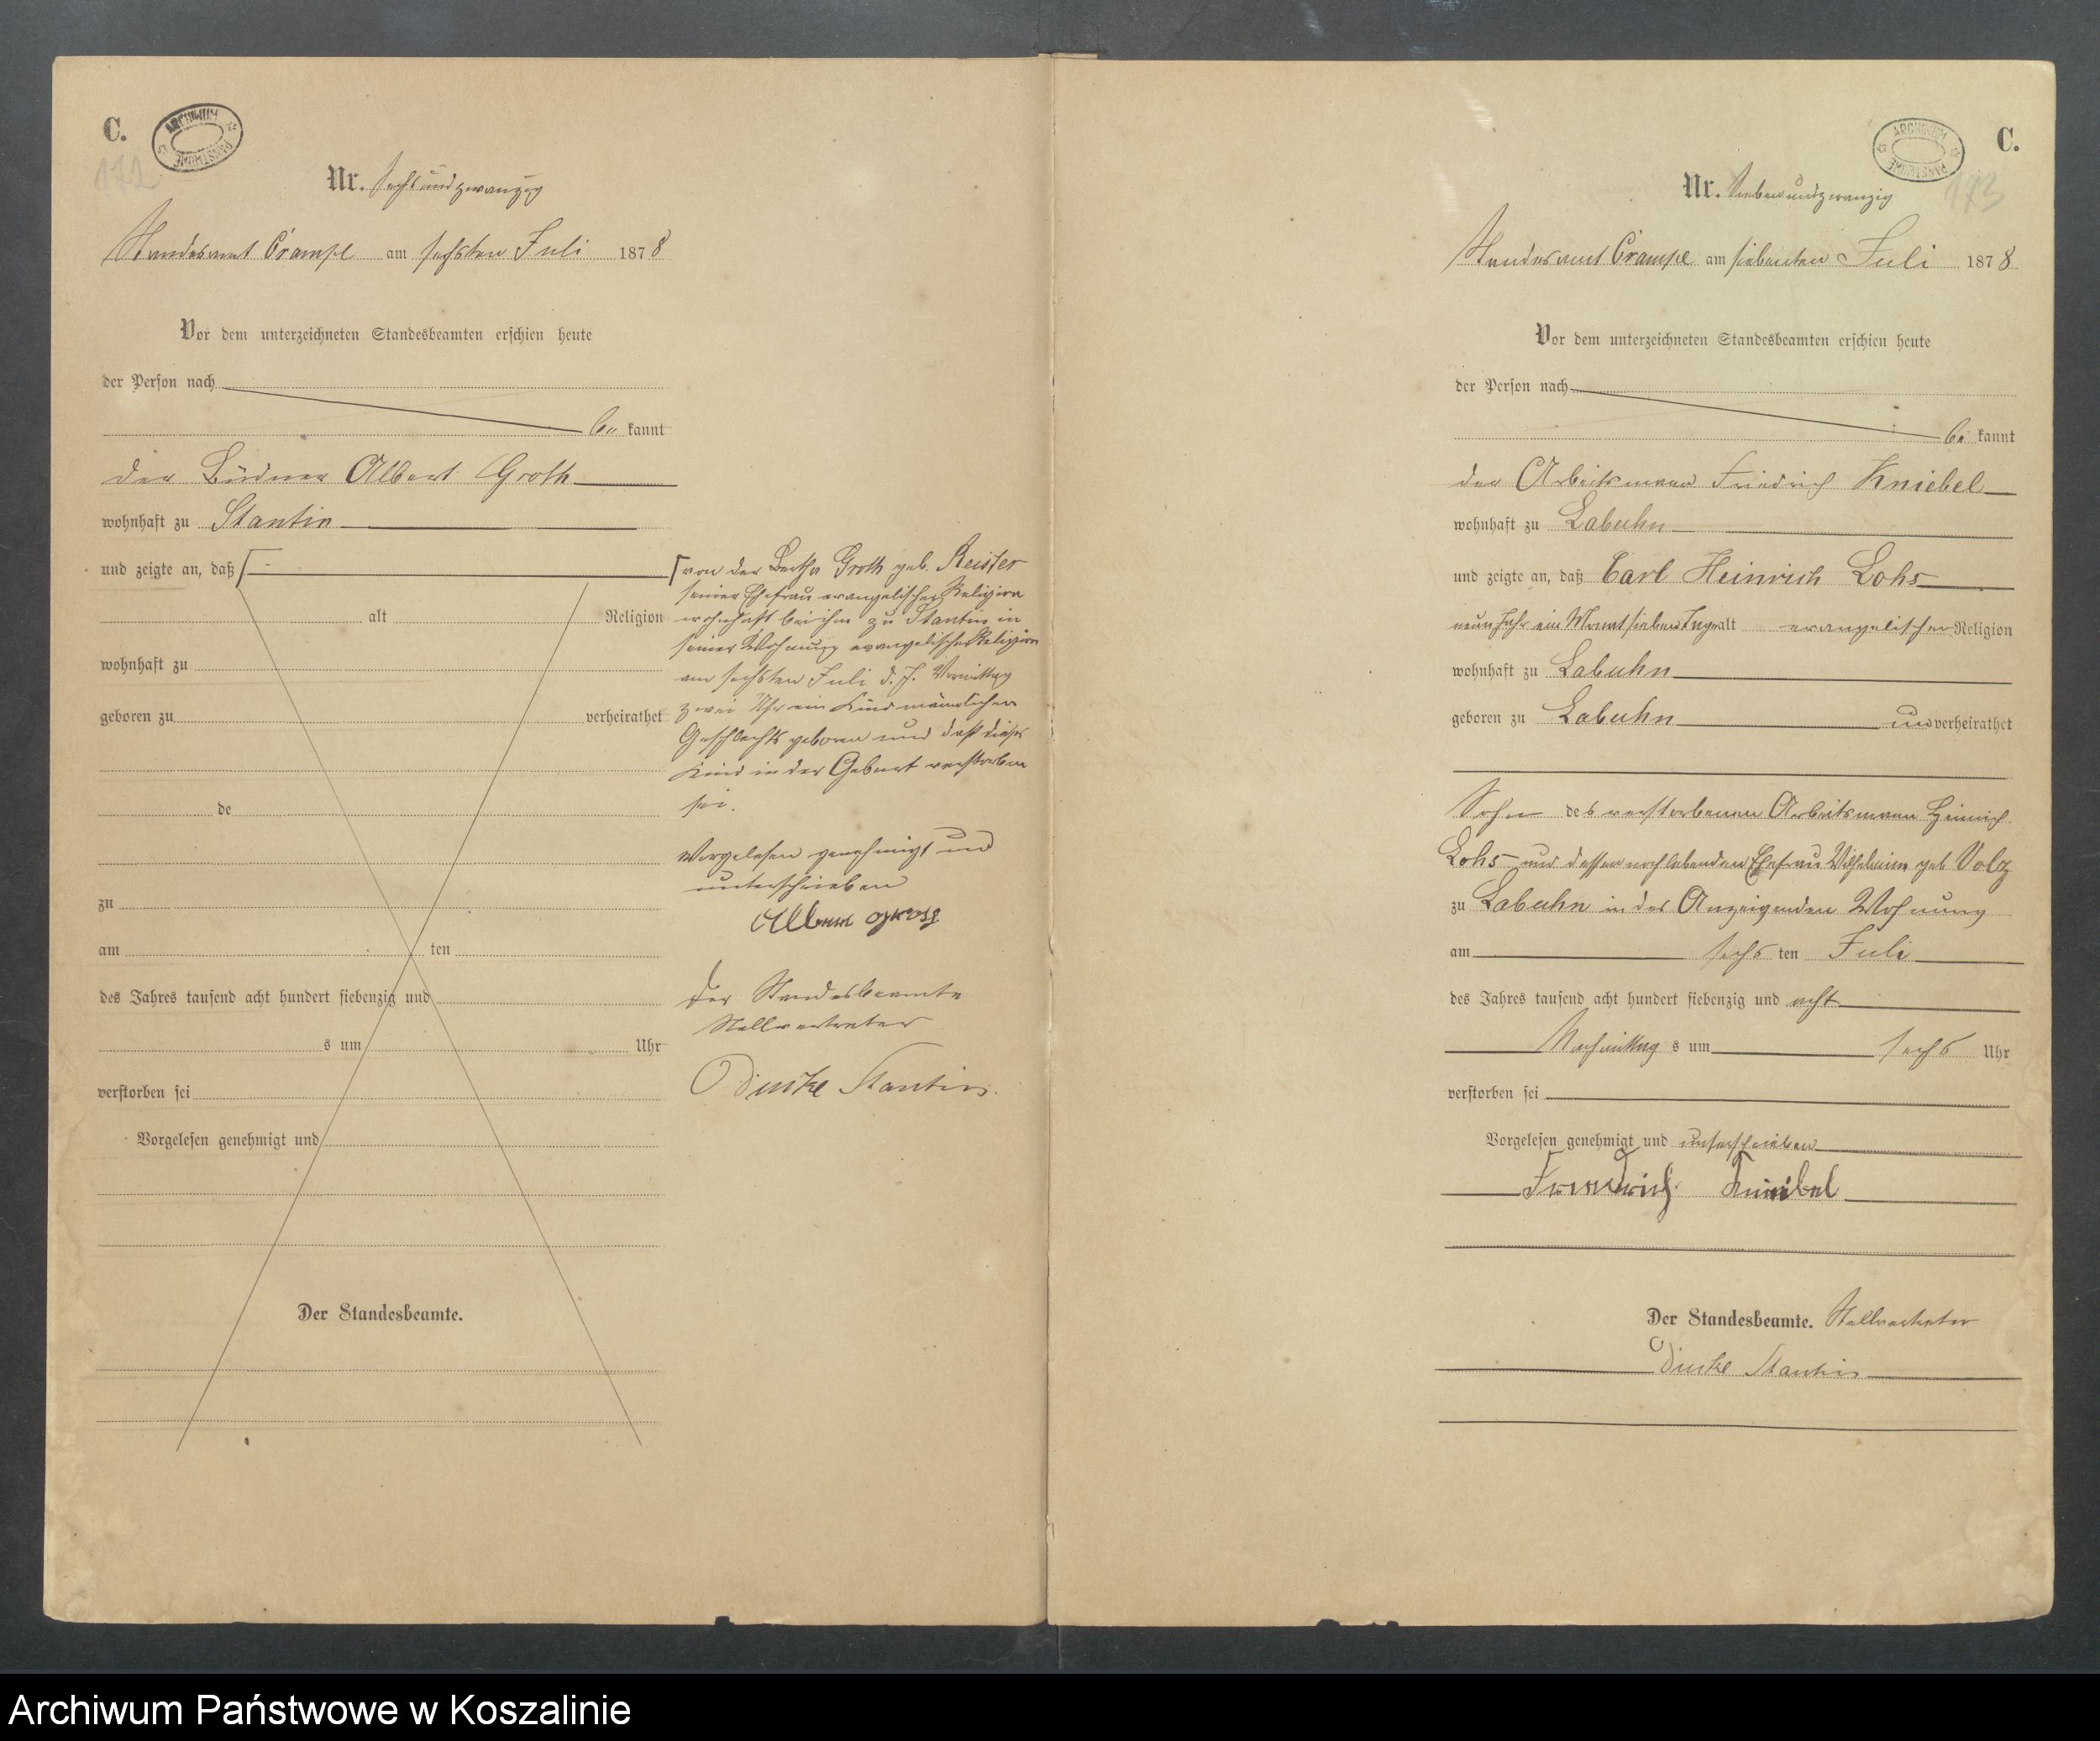 C.
ARCHIWUM PAŃSTWOWE
172
Nr. Sechsundzwanzig
Standesamt Crampe am sechsten Juli 1878
Vor dem unterzeichneten Standesbeamten erschien heute
der Person nach
be kannt
der Büdner Albert Groth
wohnhaft zu Stantin
und zeigte an, daß
alt Religion
wohnhaft zu
geboren zu verheirathet
de
zu
am ten
des Jahres tausend acht hundert siebenzig und
s um Uhr
verstorben sei
Vorgelesen genehmigt und
Der Standesbeamte.
von der Bertha Groth geb. Reister
seiner Ehefrau evangelischer Religion
wohnhaft bei ihm zu Stantin in
seiner Wohnung evangelischer Religion
am sechsten Juli d. J. Vormittag
zwei Uhr ein Kind männlichen
Geschlechts geboren und daß dieses
Kind in der Geburt verstorben
sei.
Vorgelesen genehmigt und
unterschrieben
Albert Groth
Der Standesbeamte
Stellvertreter
Stantin.
C.
ARCHIWUM PAŃSTWOWE
173
Nr. Siebenundzwanzig
Standesamt Crampe am siebenten Juli 1878
Vor dem unterzeichneten Standesbeamten erschien heute
der Person nach
be kannt
der Arbeitsmann Friedrich Kniebel
wohnhaft zu Labuhn
und zeigte an, daß Carl Heinrich Lohs
neun Jahr ein Monat sieben Tage alt evangelischer Religion
wohnhaft zu Labuhn
geboren zu Labuhn unverheirathet
Sohn des verstorbenen Arbeitsmann Heinrich
Lohs und dessen noch lebenden Ehefrau Wilhelmine geb Volz
zu Labuhn in des Anzeigenden Wohnung
am sechs ten Juli
des Jahres tausend acht hundert siebenzig und acht
Nachmittag s um sechs Uhr
verstorben sei
Vorgelesen genehmigt und unterschrieben
Friedrich Kniebel
Der Standesbeamte. Stellvertreter
Stantin
Archiwum Państwowe w Koszalinie